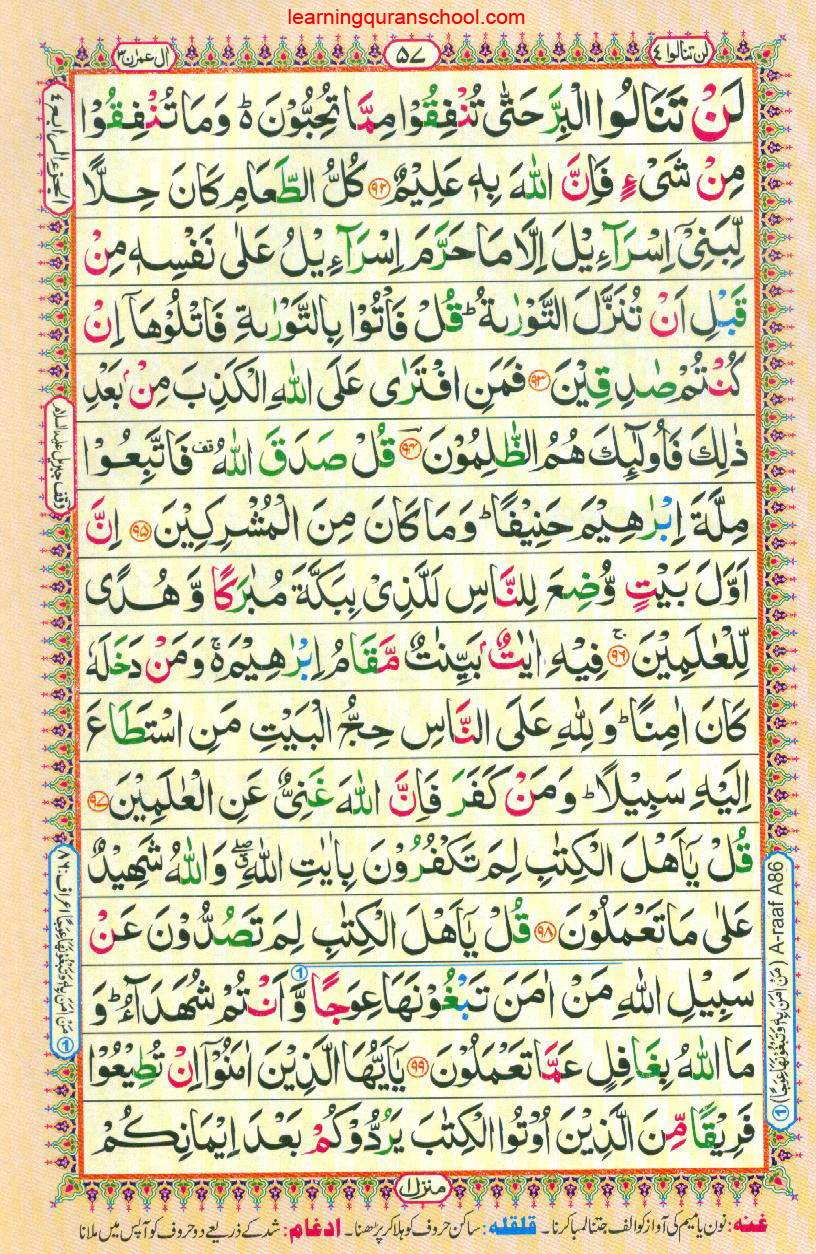 learningquranschool.com
لن تنالوا ٤
٥٧
ال عمرٰن ٣
لَنْ تَنَالُوا الْبِرَّ حَتّٰى تُنْفِقُوْا مِمَّا تُحِبُّوْنَ ؕ وَمَا تُنْفِقُوْا
مِنْ شَیْءٍ فَاِنَّ اللّٰهَ بِهٖ عَلِیْمٌ ۹۲ كُلُّ الطَّعَامِ كَانَ حِلًّا
لِّبَنِیْۤ اِسْرَآءِیْلَ اِلَّا مَا حَرَّمَ اِسْرَآءِیْلُ عَلٰى نَفْسِهٖ مِنْ
قَبْلِ اَنْ تُنَزَّلَ التَّوْرٰىةُ ؕ قُلْ فَاْتُوْا بِالتَّوْرٰىةِ فَاتْلُوْهَاۤ اِنْ
كُنْتُمْ صٰدِقِیْنَ ۹۳ فَمَنِ افْتَرٰى عَلَى اللّٰهِ الْكَذِبَ مِنْۢ بَعْدِ
ذٰلِكَ فَاُولٰٓىِٕكَ هُمُ الظّٰلِمُوْنَ ۹۴ قُلْ صَدَقَ اللّٰهُ قف فَاتَّبِعُوْا
مِلَّةَ اِبْرٰهِیْمَ حَنِیْفًا ؕ وَمَا كَانَ مِنَ الْمُشْرِكِیْنَ ۹۵ اِنَّ
اَوَّلَ بَیْتٍ وُّضِعَ لِلنَّاسِ لَلَّذِیْ بِبَكَّةَ مُبٰرَكًا وَّ هُدًى
لِّلْعٰلَمِیْنَ ۚ ۹۶ فِیْهِ اٰیٰتٌۢ بَیِّنٰتٌ مَّقَامُ اِبْرٰهِیْمَ ەۚ وَمَنْ دَخَلَهٗ
كَانَ اٰمِنًا ؕ وَلِلّٰهِ عَلَى النَّاسِ حِجُّ الْبَیْتِ مَنِ اسْتَطَاعَ
اِلَیْهِ سَبِیْلًا ؕ وَمَنْ كَفَرَ فَاِنَّ اللّٰهَ غَنِیٌّ عَنِ الْعٰلَمِیْنَ ۹۷
قُلْ یٰۤاَهْلَ الْكِتٰبِ لِمَ تَكْفُرُوْنَ بِاٰیٰتِ اللّٰهِ ۖۗ وَاللّٰهُ شَهِیْدٌ
عَلٰى مَا تَعْمَلُوْنَ ۹۸ قُلْ یٰۤاَهْلَ الْكِتٰبِ لِمَ تَصُدُّوْنَ عَنْ
سَبِیْلِ اللّٰهِ مَنْ اٰمَنَ تَبْغُوْنَهَا عِوَجًا وَّ اَنْتُمْ شُهَدَآءُ ؕ وَ
مَا اللّٰهُ بِغَافِلٍ عَمَّا تَعْمَلُوْنَ ۹۹ یٰۤاَیُّهَا الَّذِیْنَ اٰمَنُوْۤا اِنْ تُطِیْعُوْا
فَرِیْقًا مِّنَ الَّذِیْنَ اُوْتُوا الْكِتٰبَ یَرُدُّوْكُمْ بَعْدَ اِیْمَانِكُمْ
منزل ۱
الجزء الرابع ٤
وقف جبریل علیہ السلام
① مَنْ اٰمَنَ بِهٖ وَتَبْغُوْنَهَا عِوَجًا اعراف: ۸۶
① (مَنْ اٰمَنَ بِهٖ وَتَبْغُوْنَهَا عِوَجًا) A-raaf A86
①
غنہ: نون یا میم کی آواز کو الف جتنا لمبا کرنا۔ قلقلہ: ساکن حروف کو ہلا کر پڑھنا۔ ادغام: شد کے ذریعے دو حروف کو آپس میں ملانا